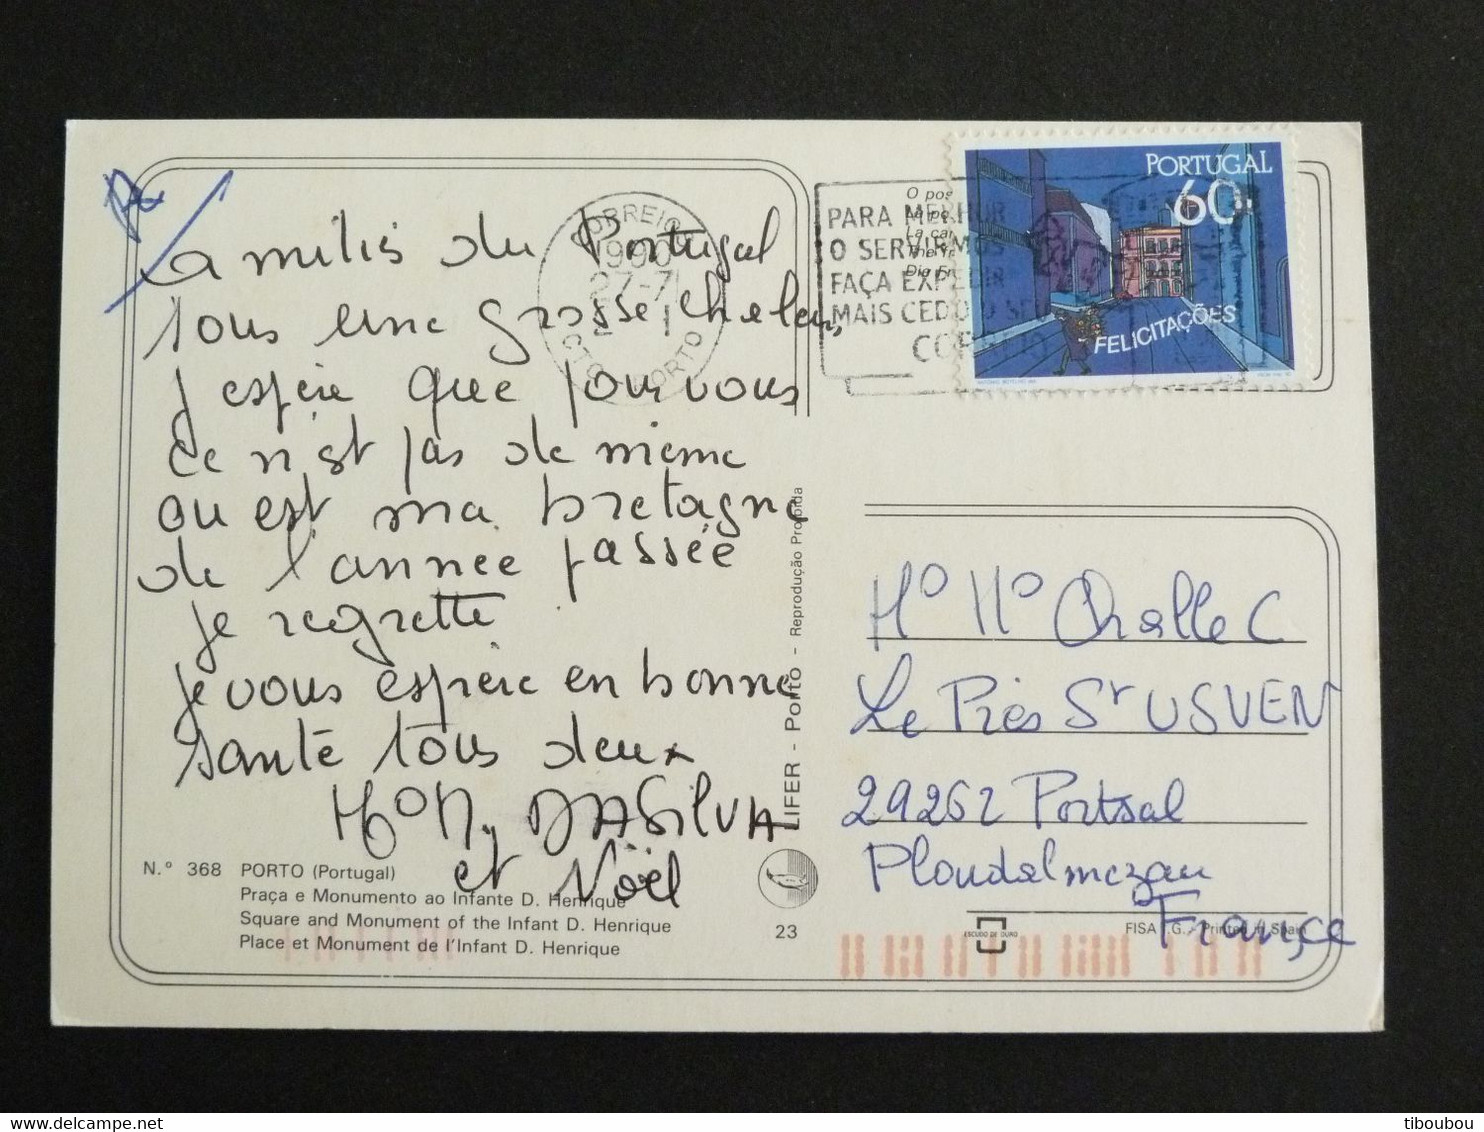 amitiés du Portugal
sous une grosse chaleur,
j espère que pour vous
ce n'est pas de même
ou est ma bretagne
de l'année passée
je regrette
je vous espère en bonne
santé tous deux
DASilVA
et Noël
N.º 368 PORTO (Portugal)
Praça e Monumento ao Infante D. Henrique
Square and Monument of the Infant D. Henrique
Place et Monument de l'Infant D. Henrique
23
LIFER - Porto - Reprodução Proibida
CORREIOS
1990
27-7
PORTO
PARA MELHOR
O SERVIRMOS
FAÇA EXPEDIR
MAIS CEDO O SEU
CORREIO
PORTUGAL
60.
FELICITAÇÕES
Le Piès St USVEN
29262 Portsal
Ploudalmezau
France
ESCUDO DE ORO
FISA I.G. - Printed in Spain
tiboubou